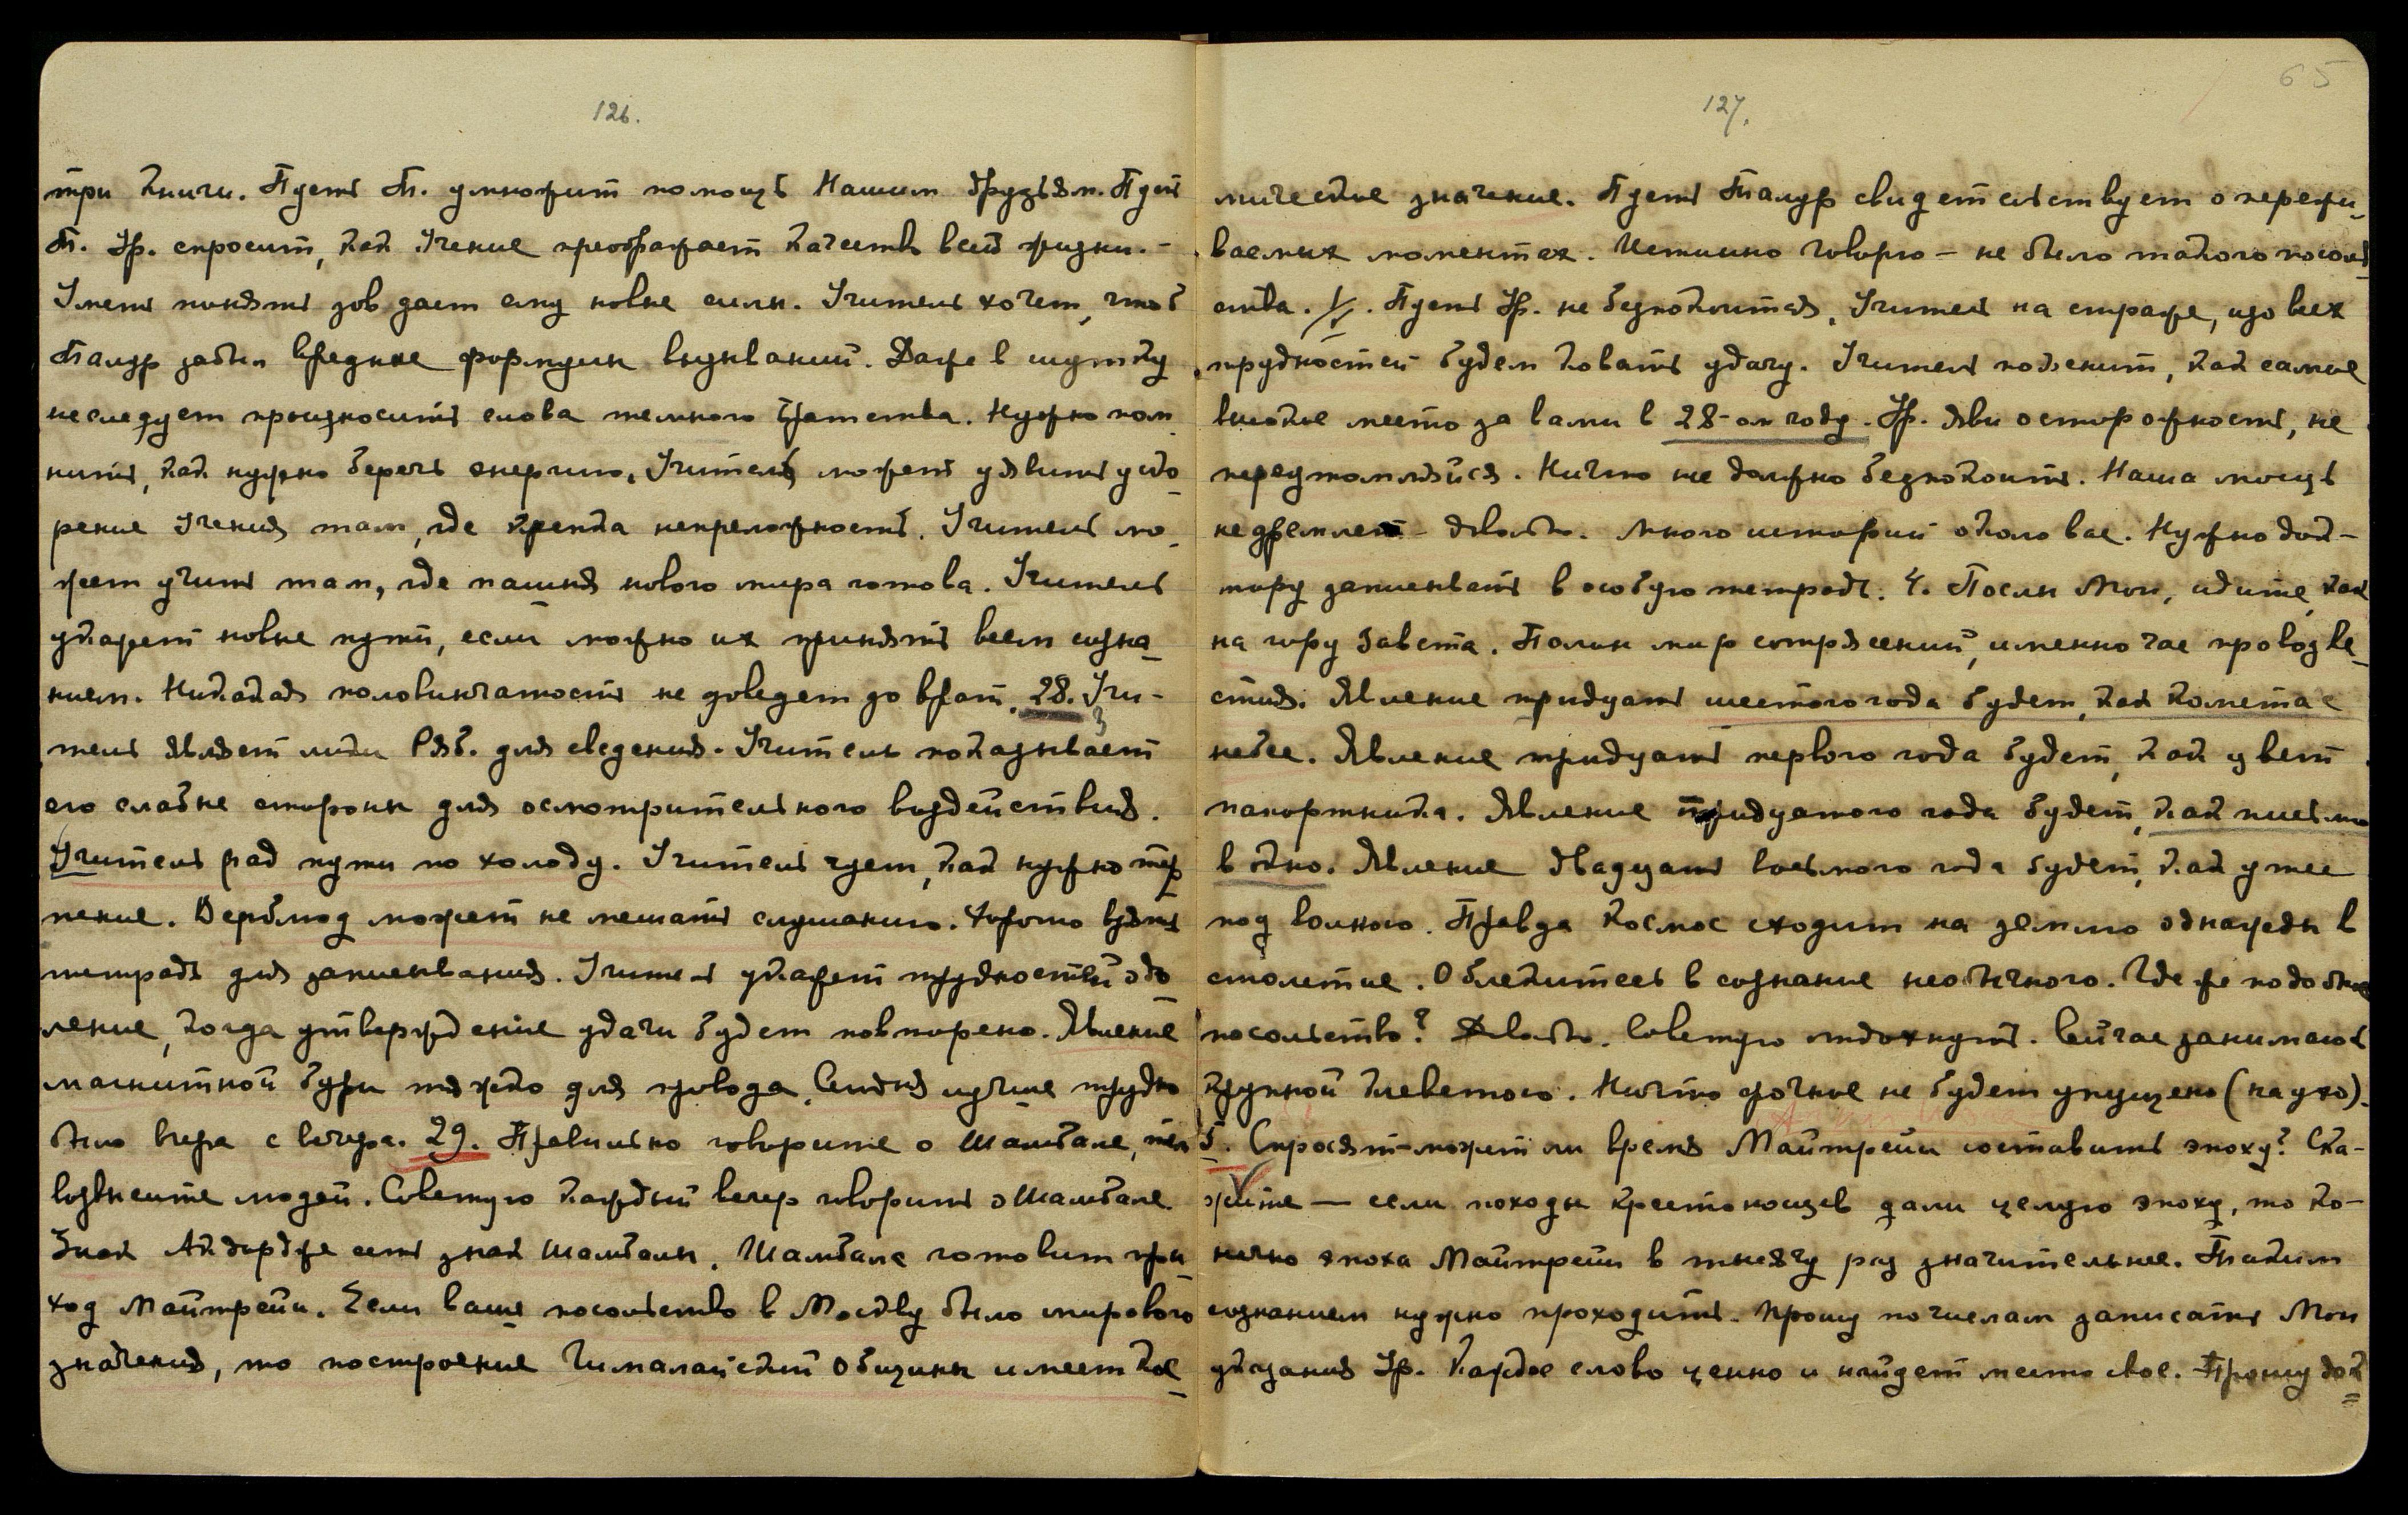 126.
три книги. Пусть Т. умножит помощь Нашим друзьям. Пусть
Т. Ур. спросит, как Учение преображает качеств всей жизни. –
Уметь понять зов дает ему новые силы. Учитель хочет, чтоб
Талур забыл вредные формулы внушаний. Даже в шутку
не следует произносить слова темного братства. Нужно пом
нить, как нужно беречь энергию. Учитель может удвоить уско
рение Учения там, где крепка непреложность. Учитель мо
жет учить там, где пашня нового мира готова. Учитель
укажет новые пути, если можно их принять всем созна
нием. Никакая половинчатость не доведет до врат. 28. Учи-
тель являет лик Ряб. для сведения. Учитель показывает
его слабые стороны для осмотрительного воздействия.
Учитель рад пути по холоду. Учитель чует, как нужно тер
пение. Верблюд может не мешать слушанию. Хорошо взять
тетрадь для записывания. Учитель укажет трудностей одо
ление, когда утверждение удачи будет повторено. Явление
магнитной бури тяжко для провода. Сиднея изучие трудно
было вчера с вечера. 29. Правильно говорите о Шамбале, тем
возвысите людей. Советую каждый вечер говорить о Шамбале.
Знак Акдордже есть знак Шамбалы. Шамбала готовит при
ход Майтрейи. Если ваше посольство в Москву было мирового
значения, то построение Гималайской Общины имеет кос
65
127.
мическое значение. Пусть Талур свидетельствует о пережи
ваемых моментах. Истинно говорю – не было такого посоль
ства. 1/X. Пусть Ур. не безпокоится, Учитель на страже, изо всех
трудностей будем ковать удачу. Учитель пояснит, как самое
высокое место за вами в 28-ом году. Ур. яви осторожность, не
переутомляйся. Ничто не должно безпокоить. Наша мощь
не дремлет – довольно. Много историй около вас. Нужно док-
тору записывать в особую тетрадь. 4. Послы Мои, идите, как
на гору Завета. Полон мир сотрясений, именно час провозве
стия. Явление тридцать шестого года будет, как комета с
небес. Явление тридцать первого года будет, как цвет
папортника. Явление тридцатого года будет, как письмо
в окно. Явление двадцать восьмого года будет, как утес
под волною. Правда Космос сходит на землю однажды в
столетие. Облекитесь в сознание необычного. Где же подобное
посольство? Довольно. Советую отдохнуть. Сейчас занимаюсь
крупной клеветою. Ничто срочное не будет упущено (на ухо).
5. Спросят – может ли время Майтрейи составить эпоху? Ска-
жите — если походы крестоносцев дали целую эпоху, то ко-
нечно эпоха Майтрейи в тысячу раз значительнее. Таким
сознанием нужно проходить. Прошу по числам записать Мои
указания Ур. Каждое слово ценно и найдет место свое. Прошу док